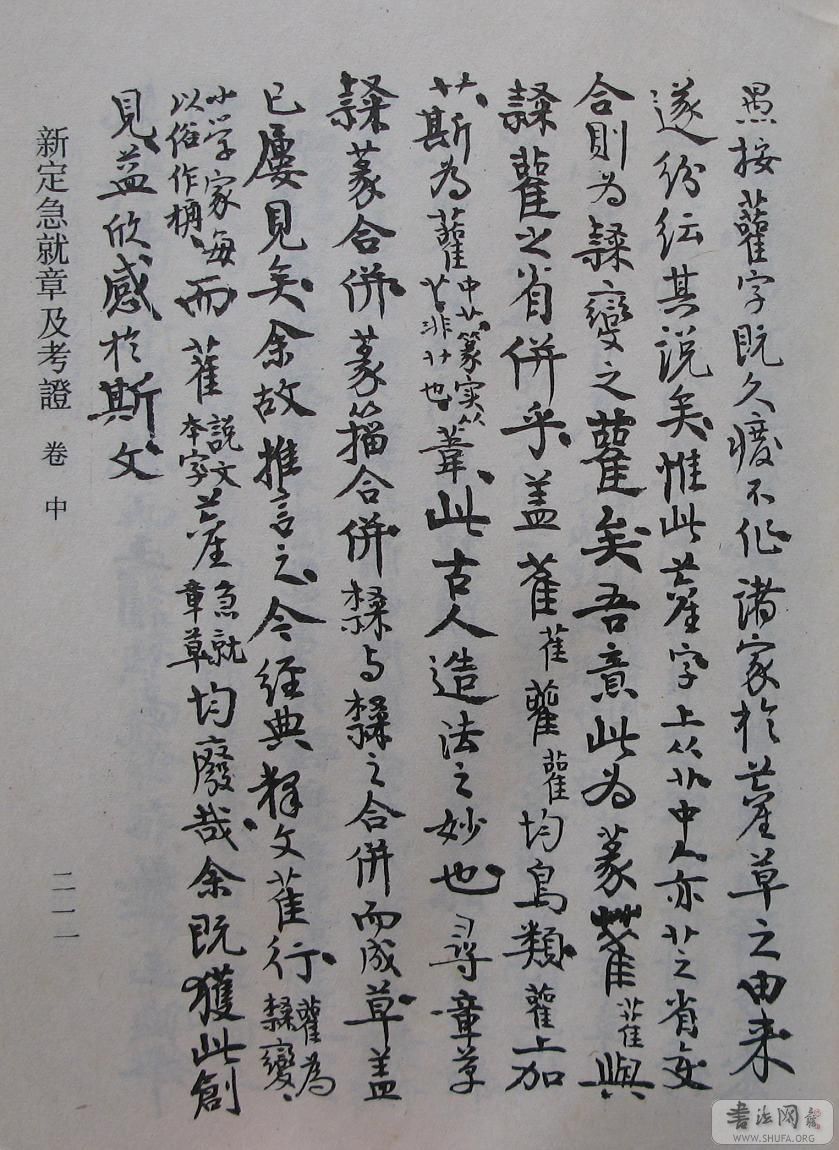 愚按雚字既久廢不作諸家於萑草之由来
遂紛紜其説矣惟此萑字上从中亦之省変
合則为隸變之雚矣吾意此为篆萑與
隸雚之省併乎盖雈萑雚均鳥類雚上加
艹斯为雚也葦此古人造法之妙也尋章草
隸篆合併篆籀合併隸与隸之合併而成草盖
已屢見矣余故推言之今經典釋文萑行雚為隸變
小学家每以俗作而萑説文本字萑急就章草均廢哉余既獲此創
見益欣感於斯文
新定急就章及考證 卷中
二一一
書法网
WWW.SHUFA.ORG